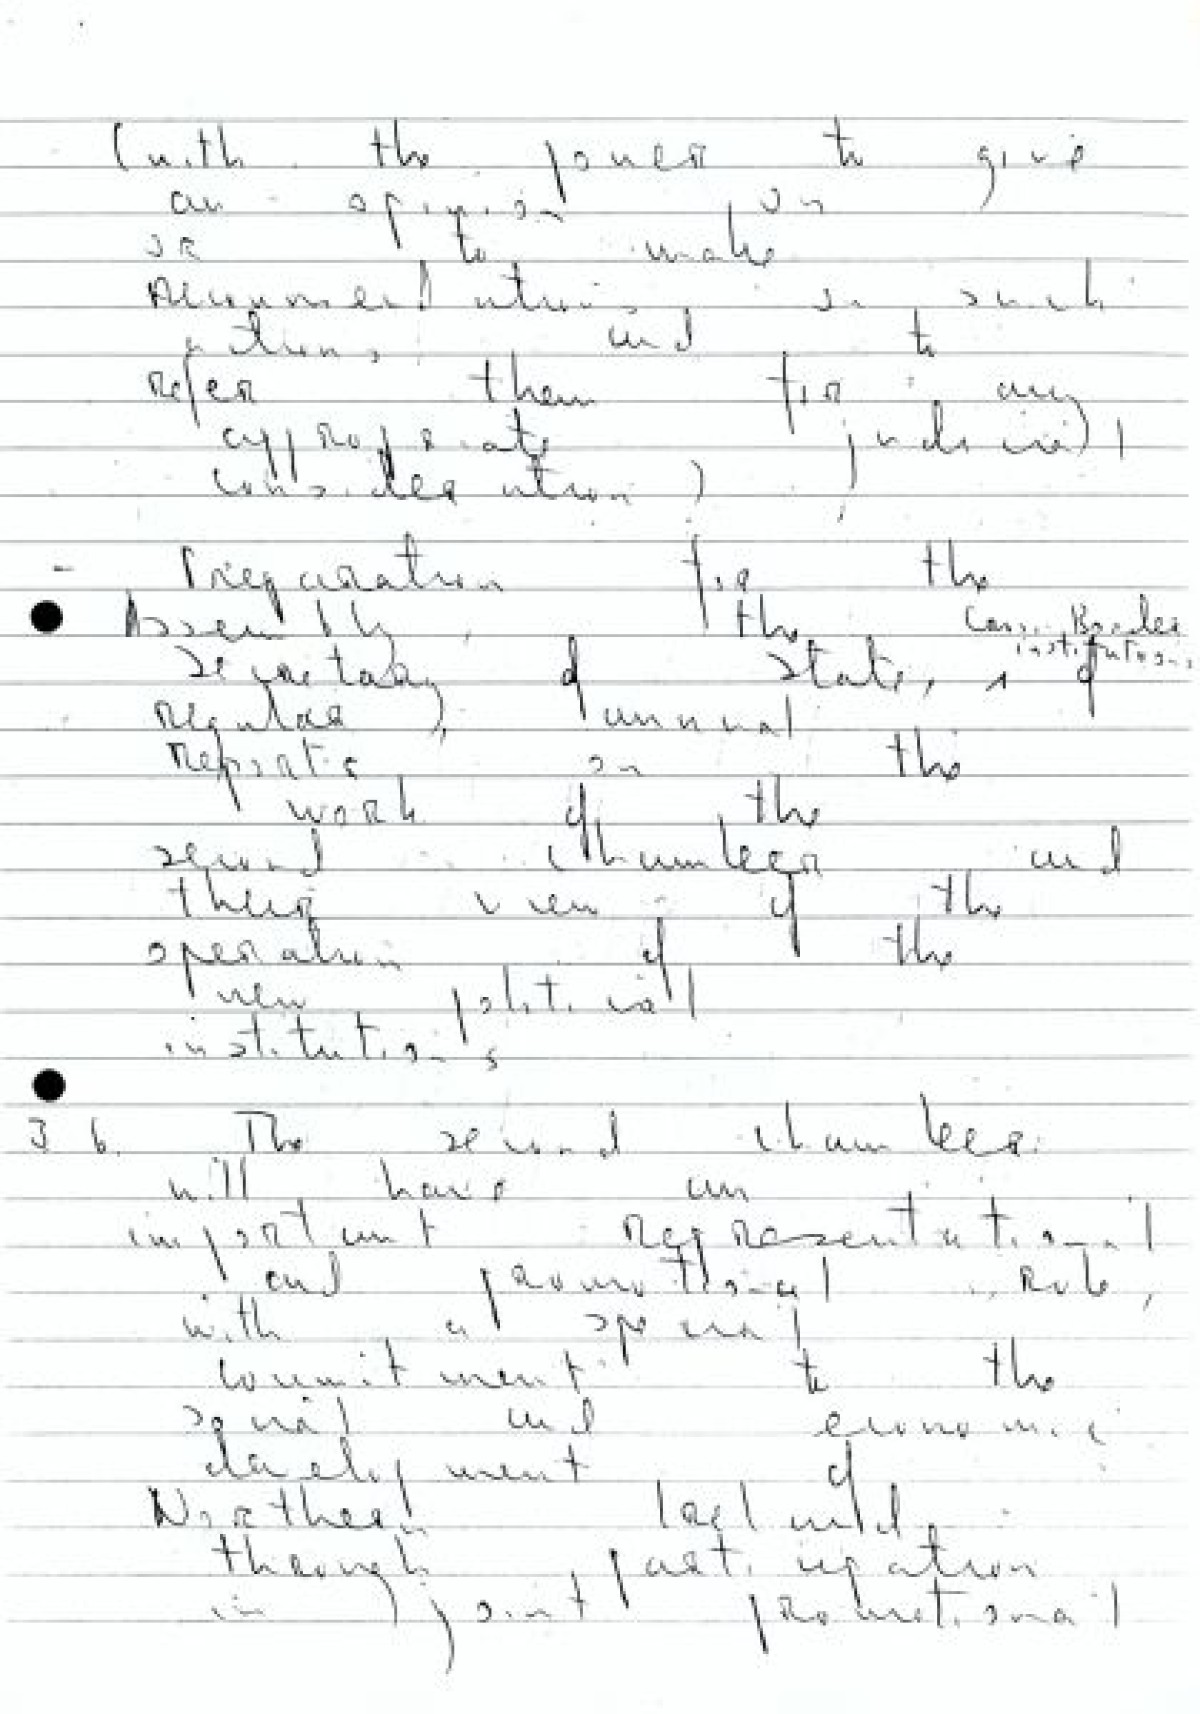 (with the power to give
an opinion on
or to make
recommendations on such
actions and to
refer them for any
appropriate judicial
consideration)
- Preparation for the
Assembly, the Cross-Border institutions
Secretary of State, & of
regular, annual
reports on the
work of the
second chamber and
their view of the
operation of the
new political
institutions
3 b. The second chamber
will have an
important representational
and promotional role,
with a special
commitment to the
social and economic
development of
Northern Ireland,
through participation
in joint promotional